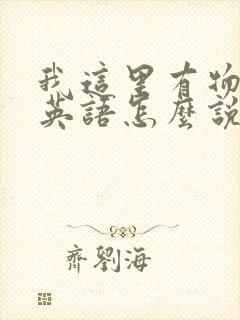 我這里有物
英語怎麼說
齊劉海